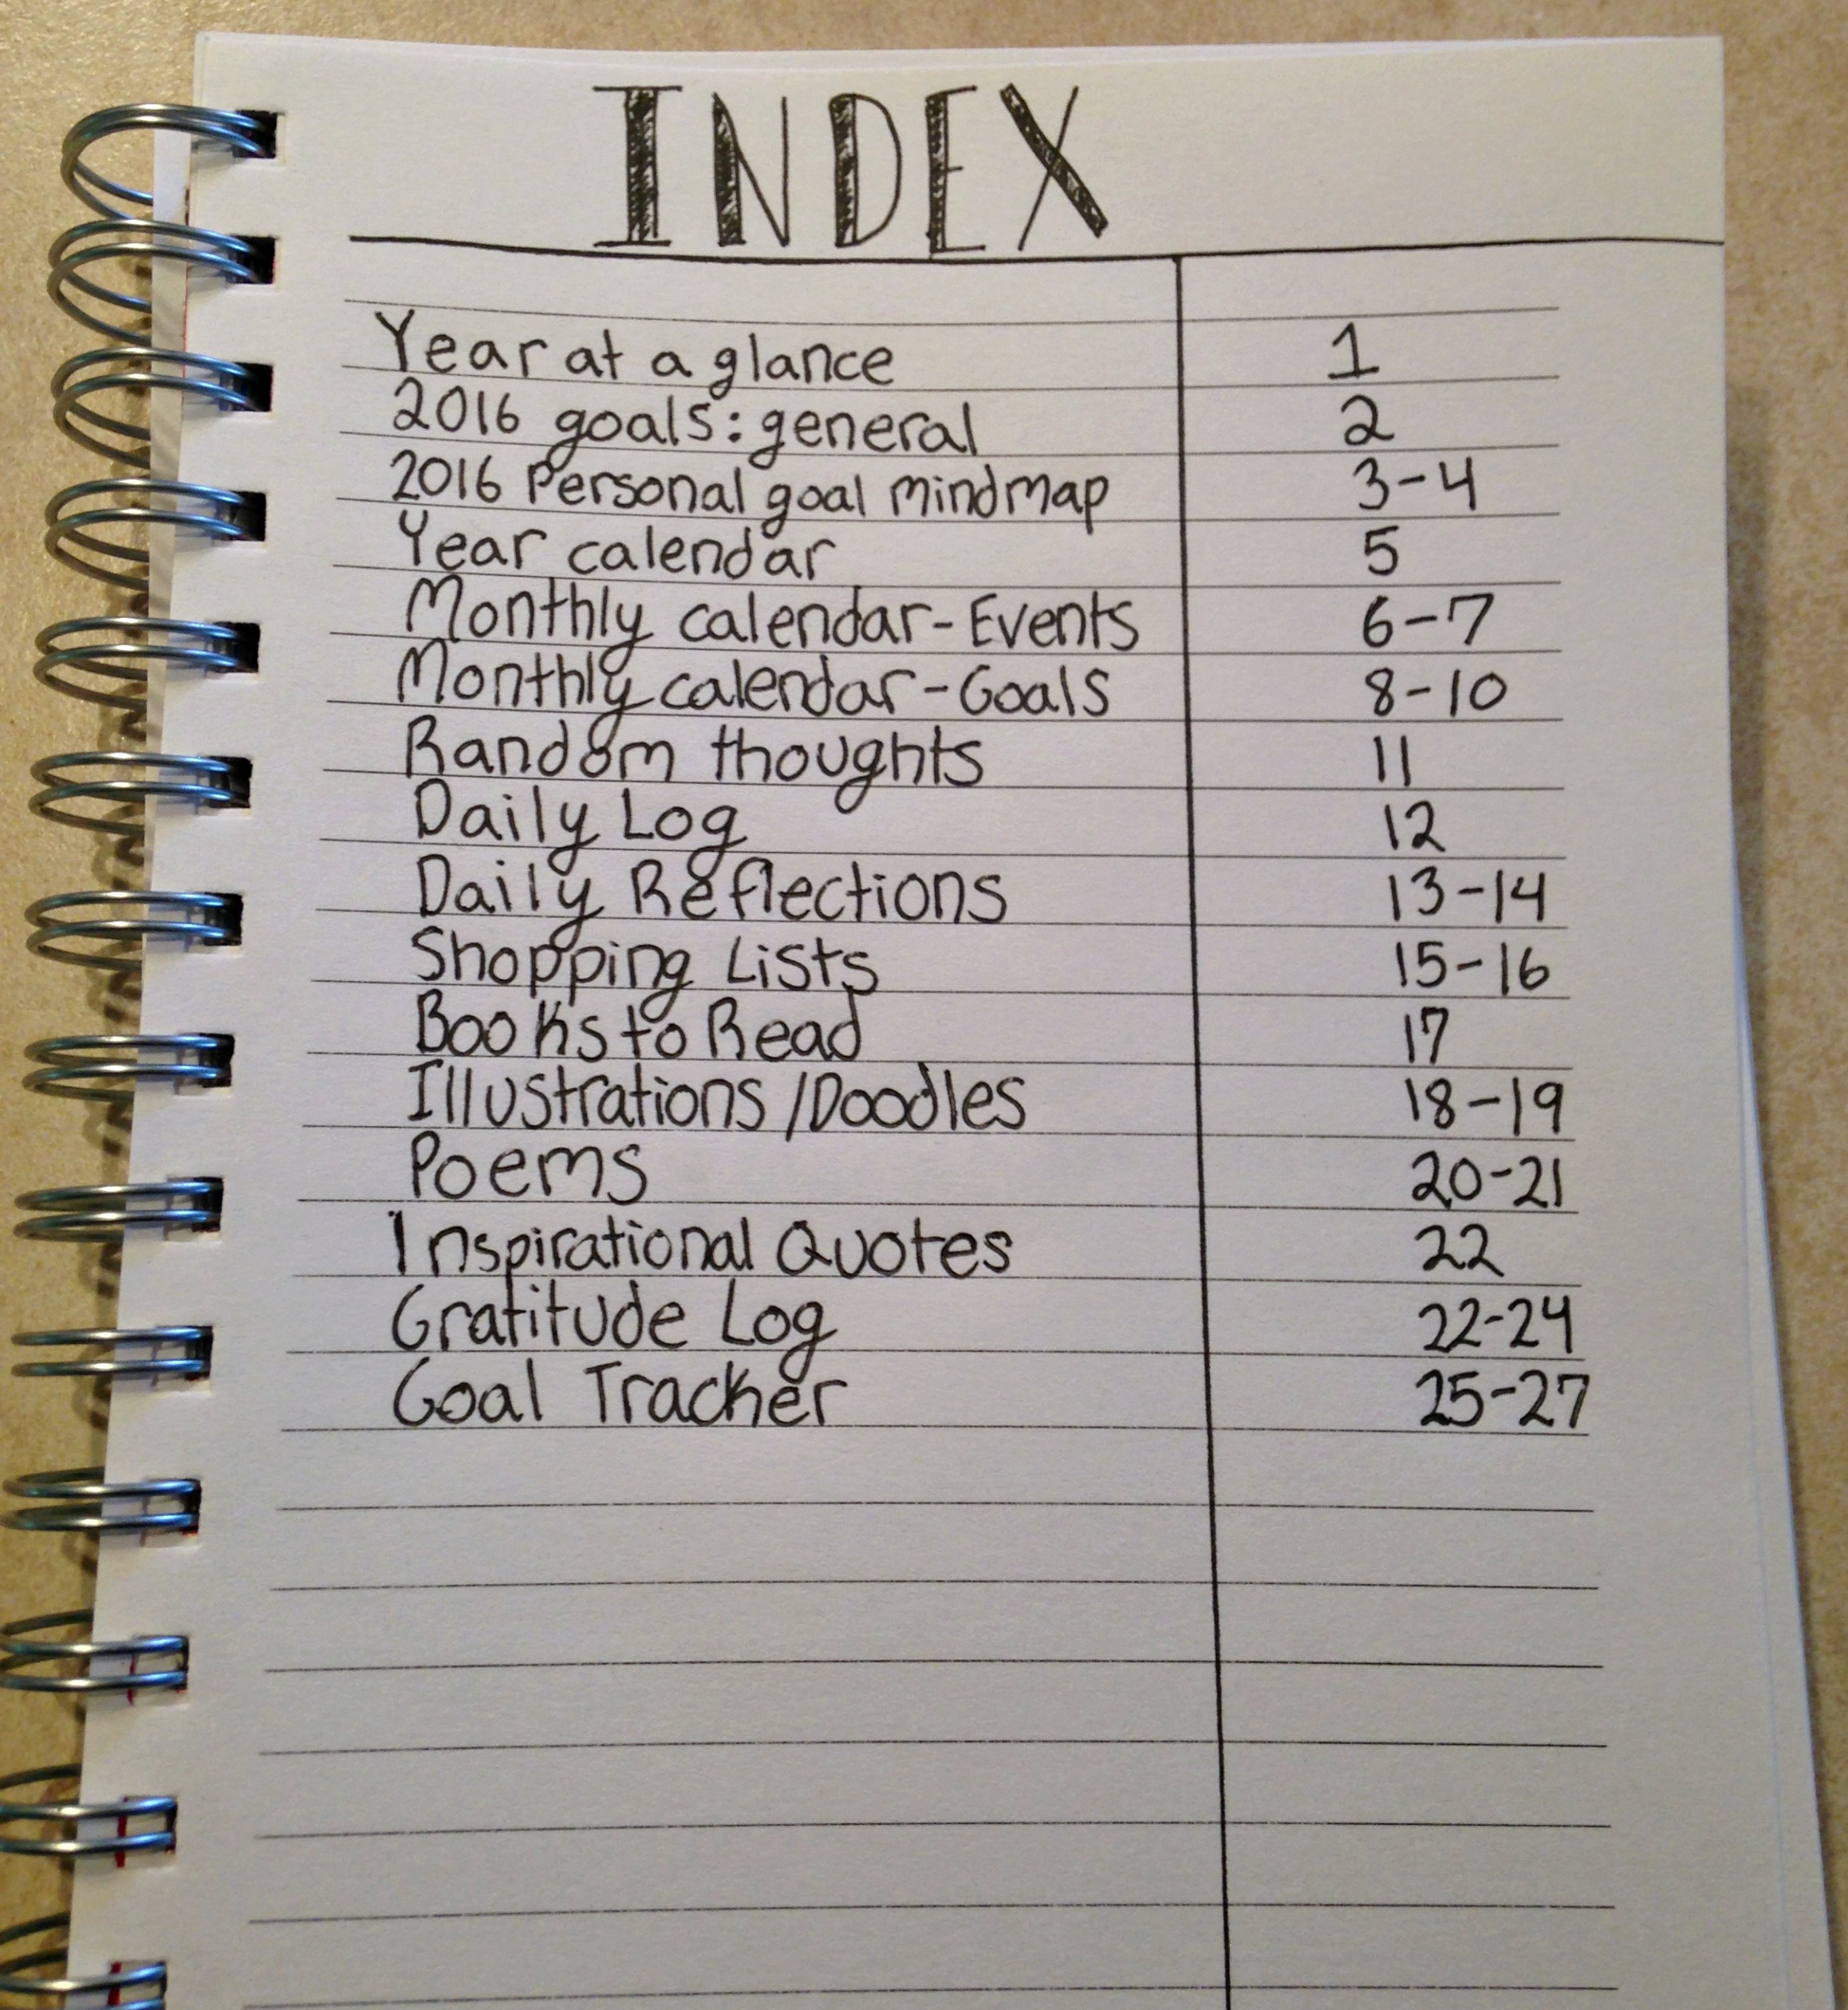 INDEX
Year at a glance 1
2016 goals: general 2
2016 Personal goal mindmap 3-4
Year calendar 5
Monthly calendar-Events 6-7
Monthly calendar-Goals 8-10
Random thoughts 11
Daily Log 12
Daily Reflections 13-14
Shopping Lists 15-16
Books to Read 17
Illustrations/Doodles 18-19
Poems 20-21
Inspirational Quotes 22
Gratitude Log 22-24
Goal Tracker 25-27